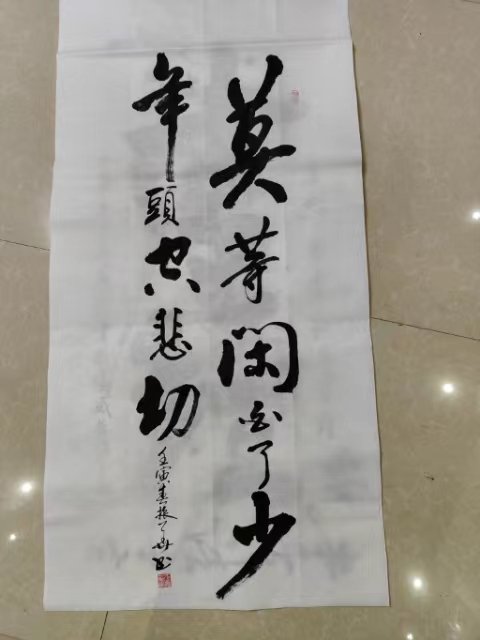 莫等閑白了少
年頭空悲切
壬寅春振